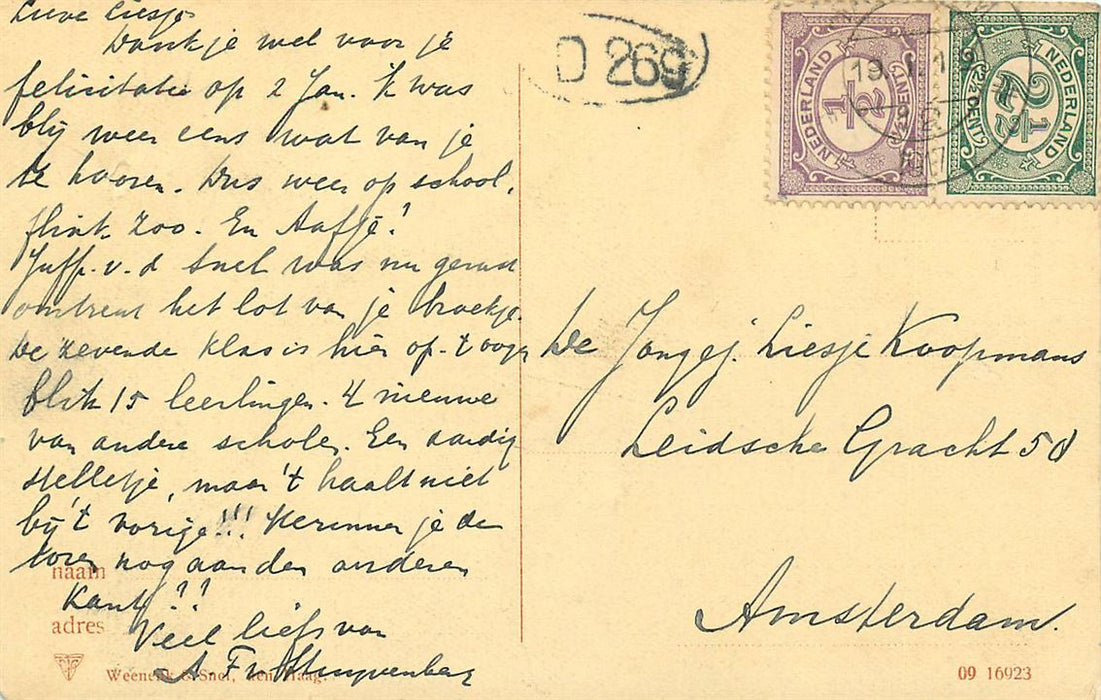 Lieve Liesje
Dank je wel voor je
felicitatie op 2 Jan. 'k was
blij weer eens wat van je
te hooren. Dus weer op school,
flink zoo. En Aafje?
Juff. v. d Snel was nu gerust
omtrent het lot van je broekje.
De zevende klas is hier op 't oogen
blik 15 leerlingen. 4 nieuwe
van andere scholen. Een aardig
stelletje, maar 't haalt niet
bij 't vorige!!! Herinner je den
toren nog aan den anderen
kant??
Veel liefs van
A. F. v.
naam
adres
Weenenk & Snel, den Haag.
D 269
NEDERLAND
1/2
CENT
NEDERLAND
2 1/2
CENT
De Jongej. Liesje Koopmans
Leidsche Gracht 58
Amsterdam.
09 16923